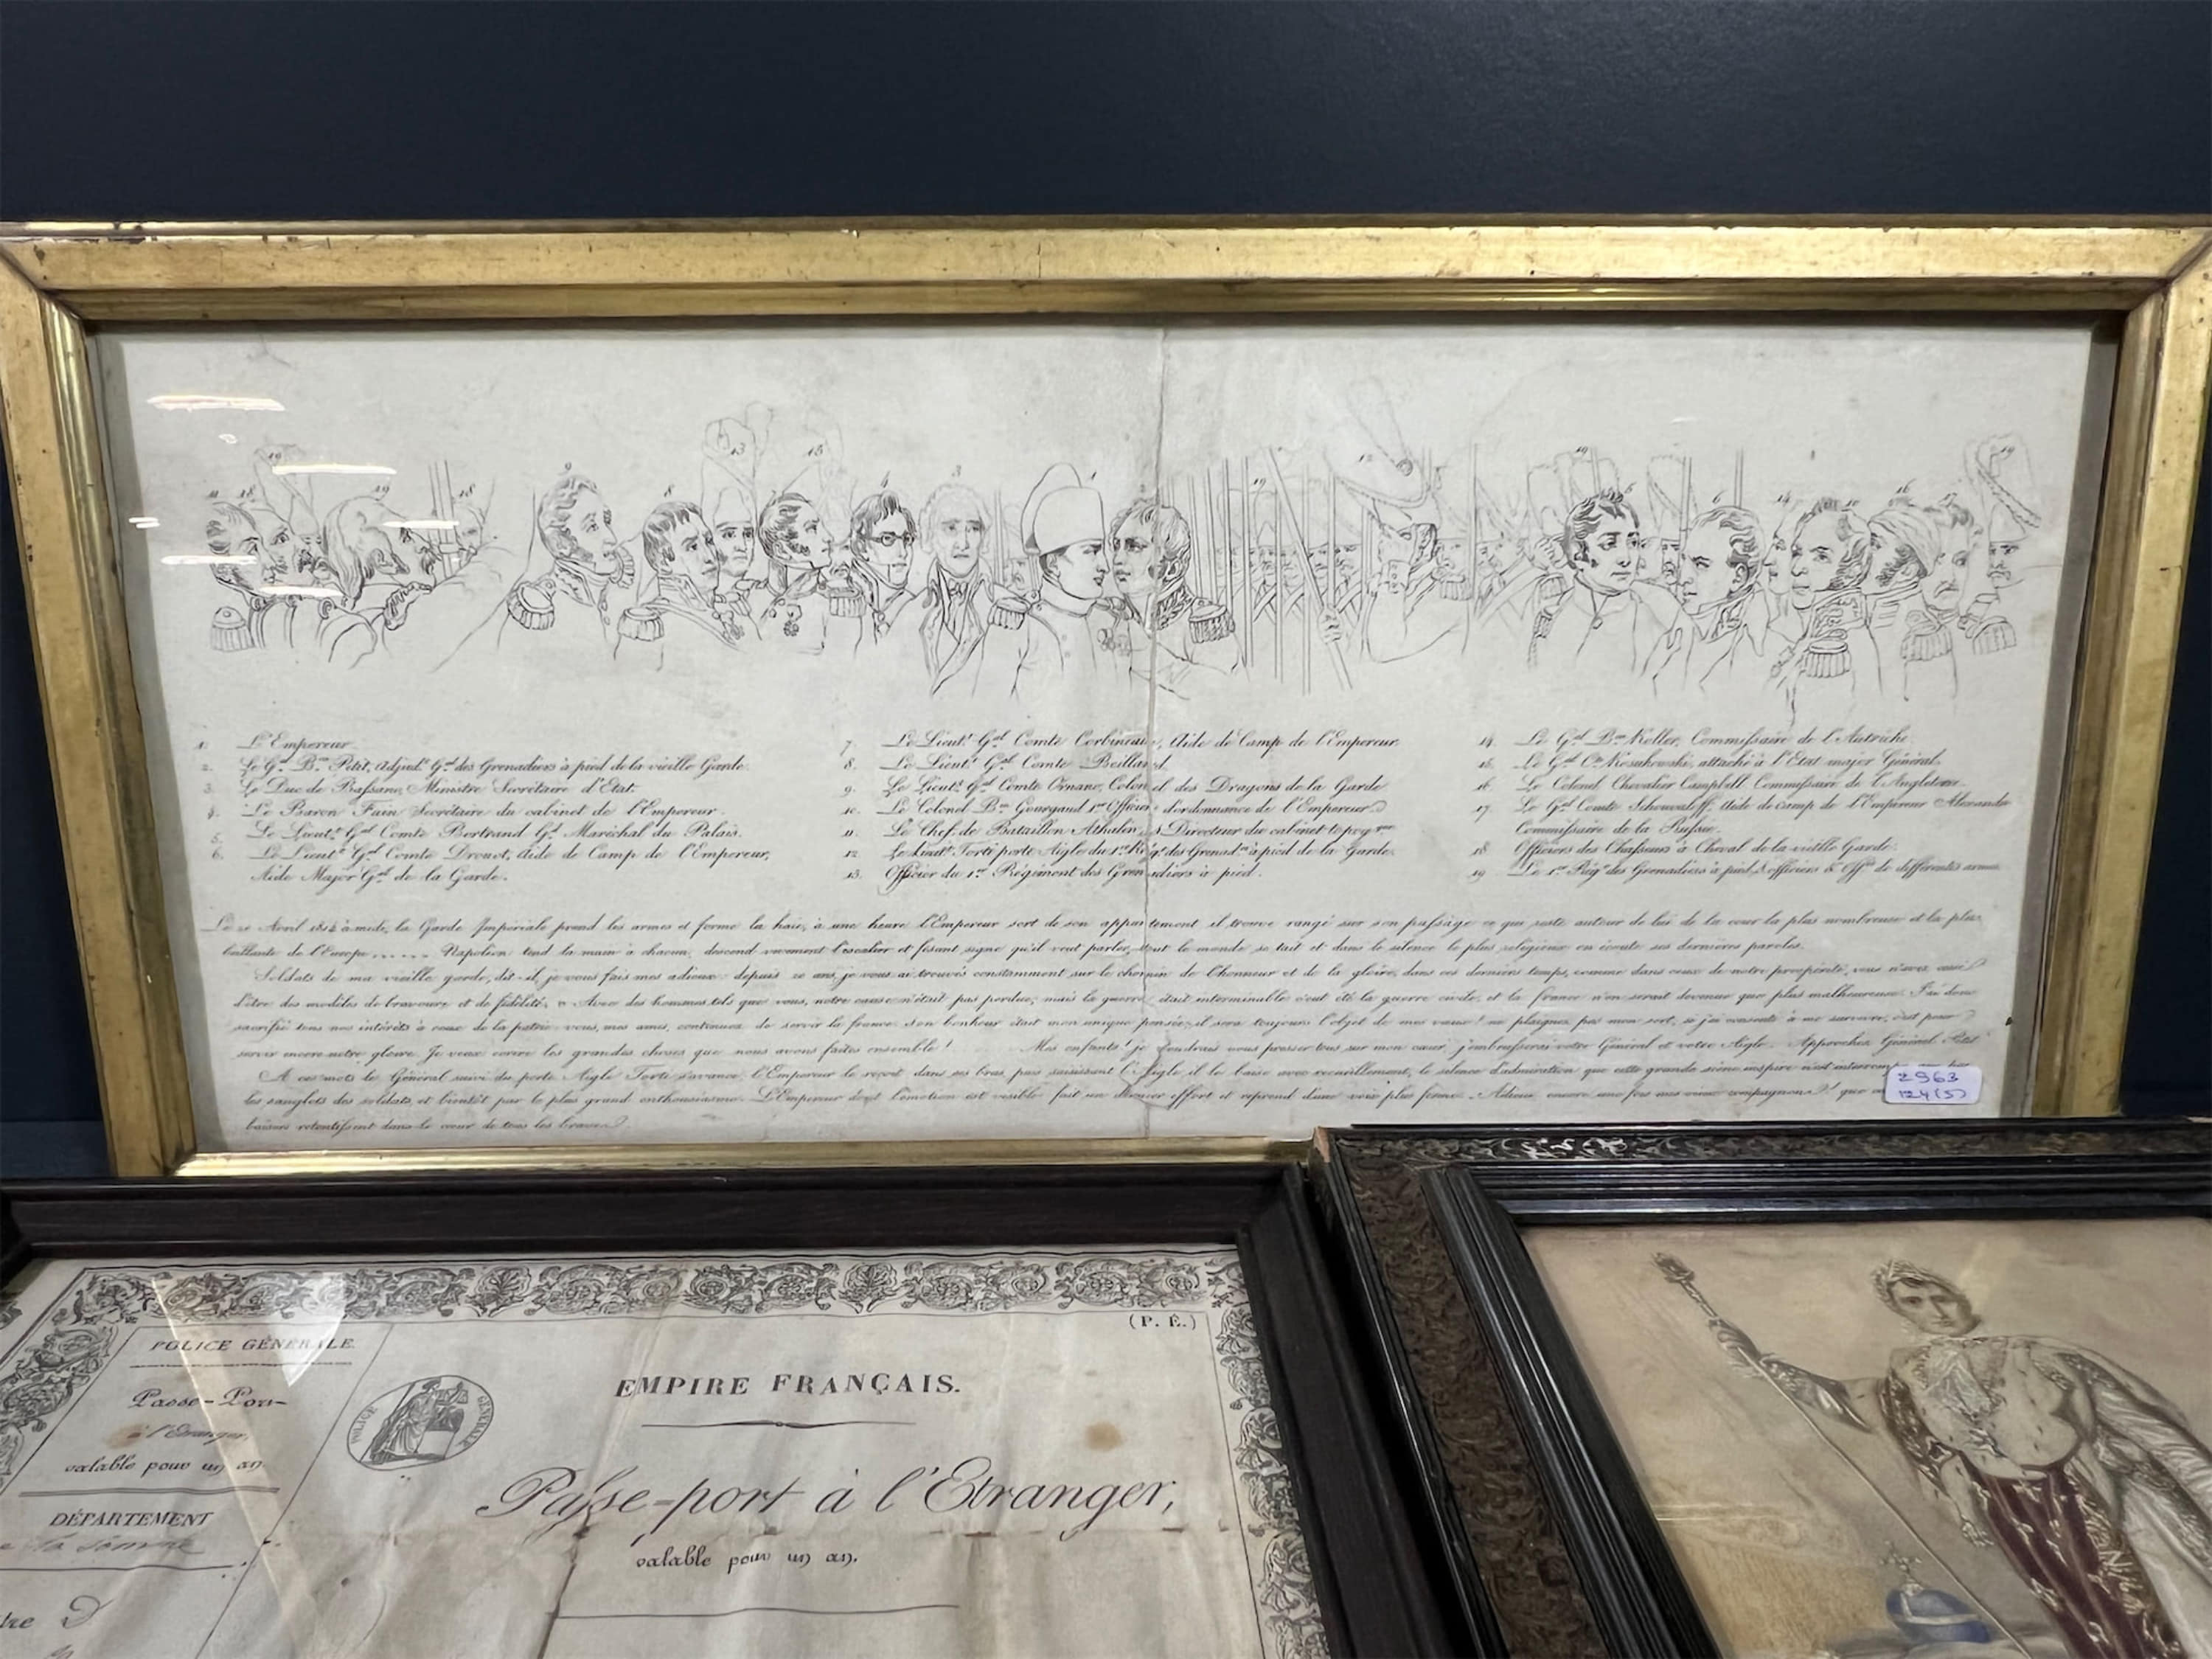 1. L'Empereur.
2. Le Gal. Bon. Petit, Adjudt. Gal. des Grenadiers à pied de la vieille Garde.
3. Le Duc de Bassano, Ministre Secrétaire d'Etat.
4. Le Baron Fain Secrétaire du cabinet de l'Empereur.
5. Le Lieutt. Gal. Comte Bertrand Gd. Maréchal du Palais.
6. Le Lieutt. Gal. Comte Drouot, Aide de Camp de l'Empereur,
Aide Major Gal. de la Garde.
7. Le Lieutt. Gal. Comte Corbineau, Aide de Camp de l'Empereur.
8. Le Lieutt. Gal. Comte Belliard.
9. Le Lieutt. Gal. Comte Ornano, Colonel des Dragons de la Garde
10. Le Colonel Bon. Gourgaud 1er Officier d'ordonnance de l'Empereur
11. Le Chef de Bataillon Athalin, Directeur du cabinet topogque
12. Le Lieutt. Forti porte Aigle du 1er Régt. des Grenadrs. à pied de la Garde.
13. Officier du 1er Régiment des Grenadiers à pied.
14. Le Gal. Bon. Koller, Commissaire de l'Autriche.
15. Le Gal. Cte Kosakowski, attaché à l'Etat major Général.
16. Le Colonel Chevalier Campbell Commissaire de l'Angleterre.
17. Le Gal. Comte Schouwaloff, Aide de camp de l'Empereur Alexandre
Commissaire de la Russie.
18 Officiers des Chasseurs à Cheval de la vieille Garde.
19 Le 1er Régt. des Grenadiers à pied, & officiers & Offrs de différentes armes
Le 20 Avril 1814 à midi, la Garde Impériale prend les armes et forme la haie, à une heure l'Empereur sort de son appartement il trouve rangé sur son passage ce qui reste autour de lui de la cour la plus nombreuse et la plus
brillante de l'Europe...... Napoléon tend la main à chacun, descend vivement l'escalier et fesant signe qu'il veut parler, tout le monde se tait et dans le silence le plus religieux on écoute ses dernières paroles.
Soldats de ma vieille garde, dit-il, je vous fais mes adieux: depuis 20 ans, je vous ai trouvés constamment sur le chemin de l'honneur et de la gloire, dans ces derniers tems, comme dans ceux de notre prospérité, vous n'avez cessé
d'être des modèles de bravoure et de fidélité, Avec des hommes tels que vous, notre cause n'était pas perdue, mais la guerre était interminable c'eut été la guerre civile, et la france n'en serait devenue que plus malheureuse. J'ai donc
sacrifié tous nos intérêts à ceux de la patrie. vous, mes amis, continuez de servir la france. Son bonheur était mon unique pensée, il sera toujours l'objet de mes vœux! ne plaignez pas mon sort, si j'ai consenti à me survivre, c'est pour
servir encore notre gloire. Je veux écrire les grandes choses que nous avons faites ensemble! Mes enfants! je voudrais vous presser tous sur mon cœur, j'embrasserai votre Général et votre Aigle. Approchez Général Petit
A ces mots le Général suivi du porte Aigle Forti s'avance, l'Empereur le reçoit dans ses bras, puis saisissant l'Aigle il le baise avec recueillement, le silence d'admiration que cette grande scène inspire n'est interrompu
les sanglots des soldats, et bientôt par le plus grand enthousiasme. L'Empereur dont l'émotion est visible fait un dernier effort et reprend d'une voix plus ferme. Adieu encore une fois mes vieux compagnons! que
baisers retentissent dans le cœur de tous les braves.
2963
124(5)
(P. É.)
POLICE GÉNÉRALE.
Passe-Port
à l'Étranger,
valable pour un an.
DÉPARTEMENT
POLICE GÉNÉRALE
EMPIRE FRANÇAIS.
Passe-port à l'Etranger,
valable pour un an.